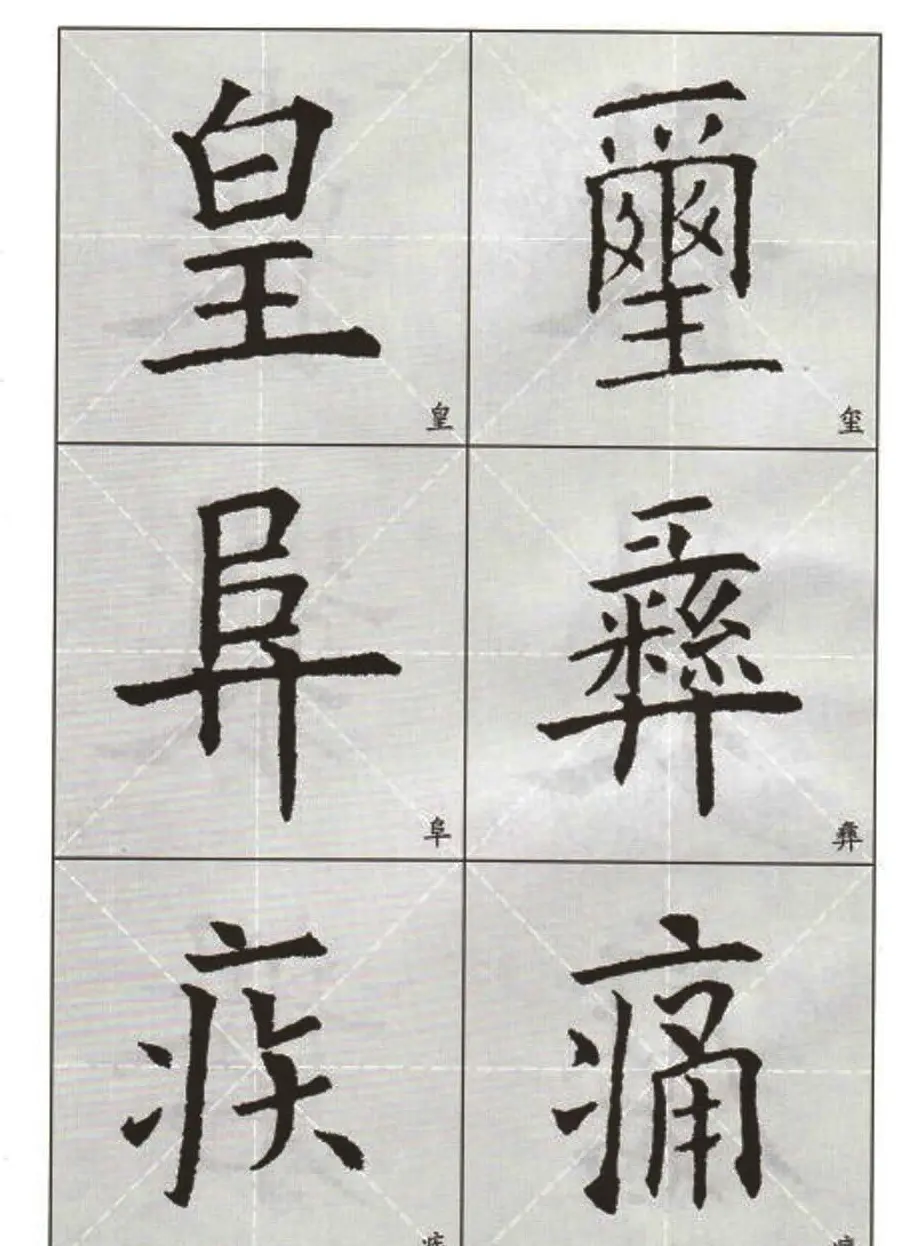 皇 璽
皇 玺
阜 彝
阜 彝
疾 痛
疾 痛